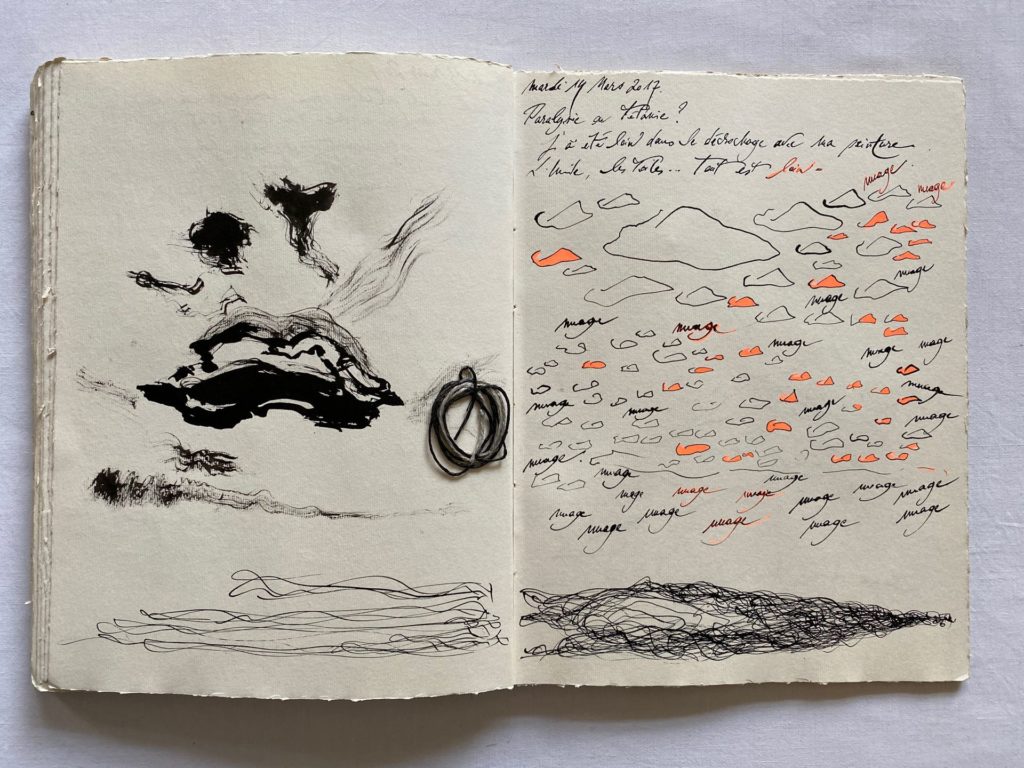 mardi 14 Mars 2017.
Paralysie ou Tétanie ?
J'ai été loin dans le décrochage avec ma peinture.
L'huile, les toiles... Tout est loin.
nuage nuage
nuage
nuage
nuage nuage
nuage nuage nuage
nuage
nuage nuage nuage nuage
nuage
nuage nuage
nuage nuage nuage nuage nuage nuage
nuage nuage nuage
nuage nuage nuage